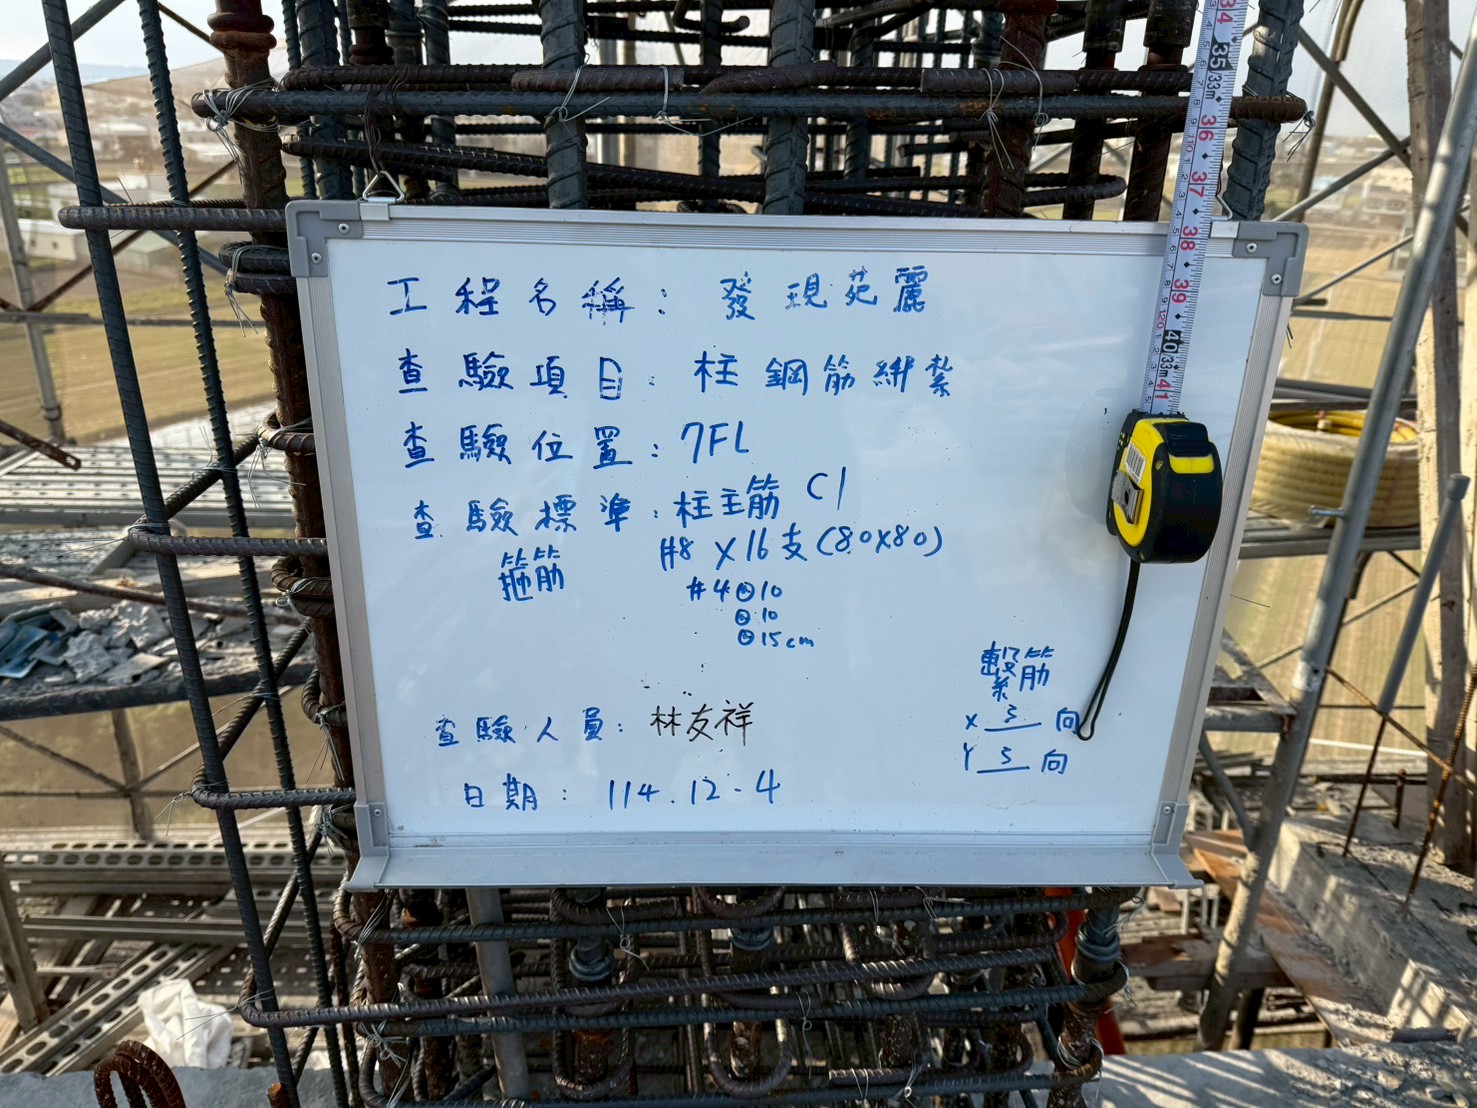 工程名稱：發現苑麗
查驗項目：柱鋼筋綁紮
查驗位置：7FL
查驗標準：柱主筋 C1
#8 X 16支(80X80)
箍筋
#4@10
@10
@15cm
繫筋
X 3 向
Y 3 向
查驗人員：林友祥
日期：114.12.4
34
35
33m
36
37
38
39
40
33m
41